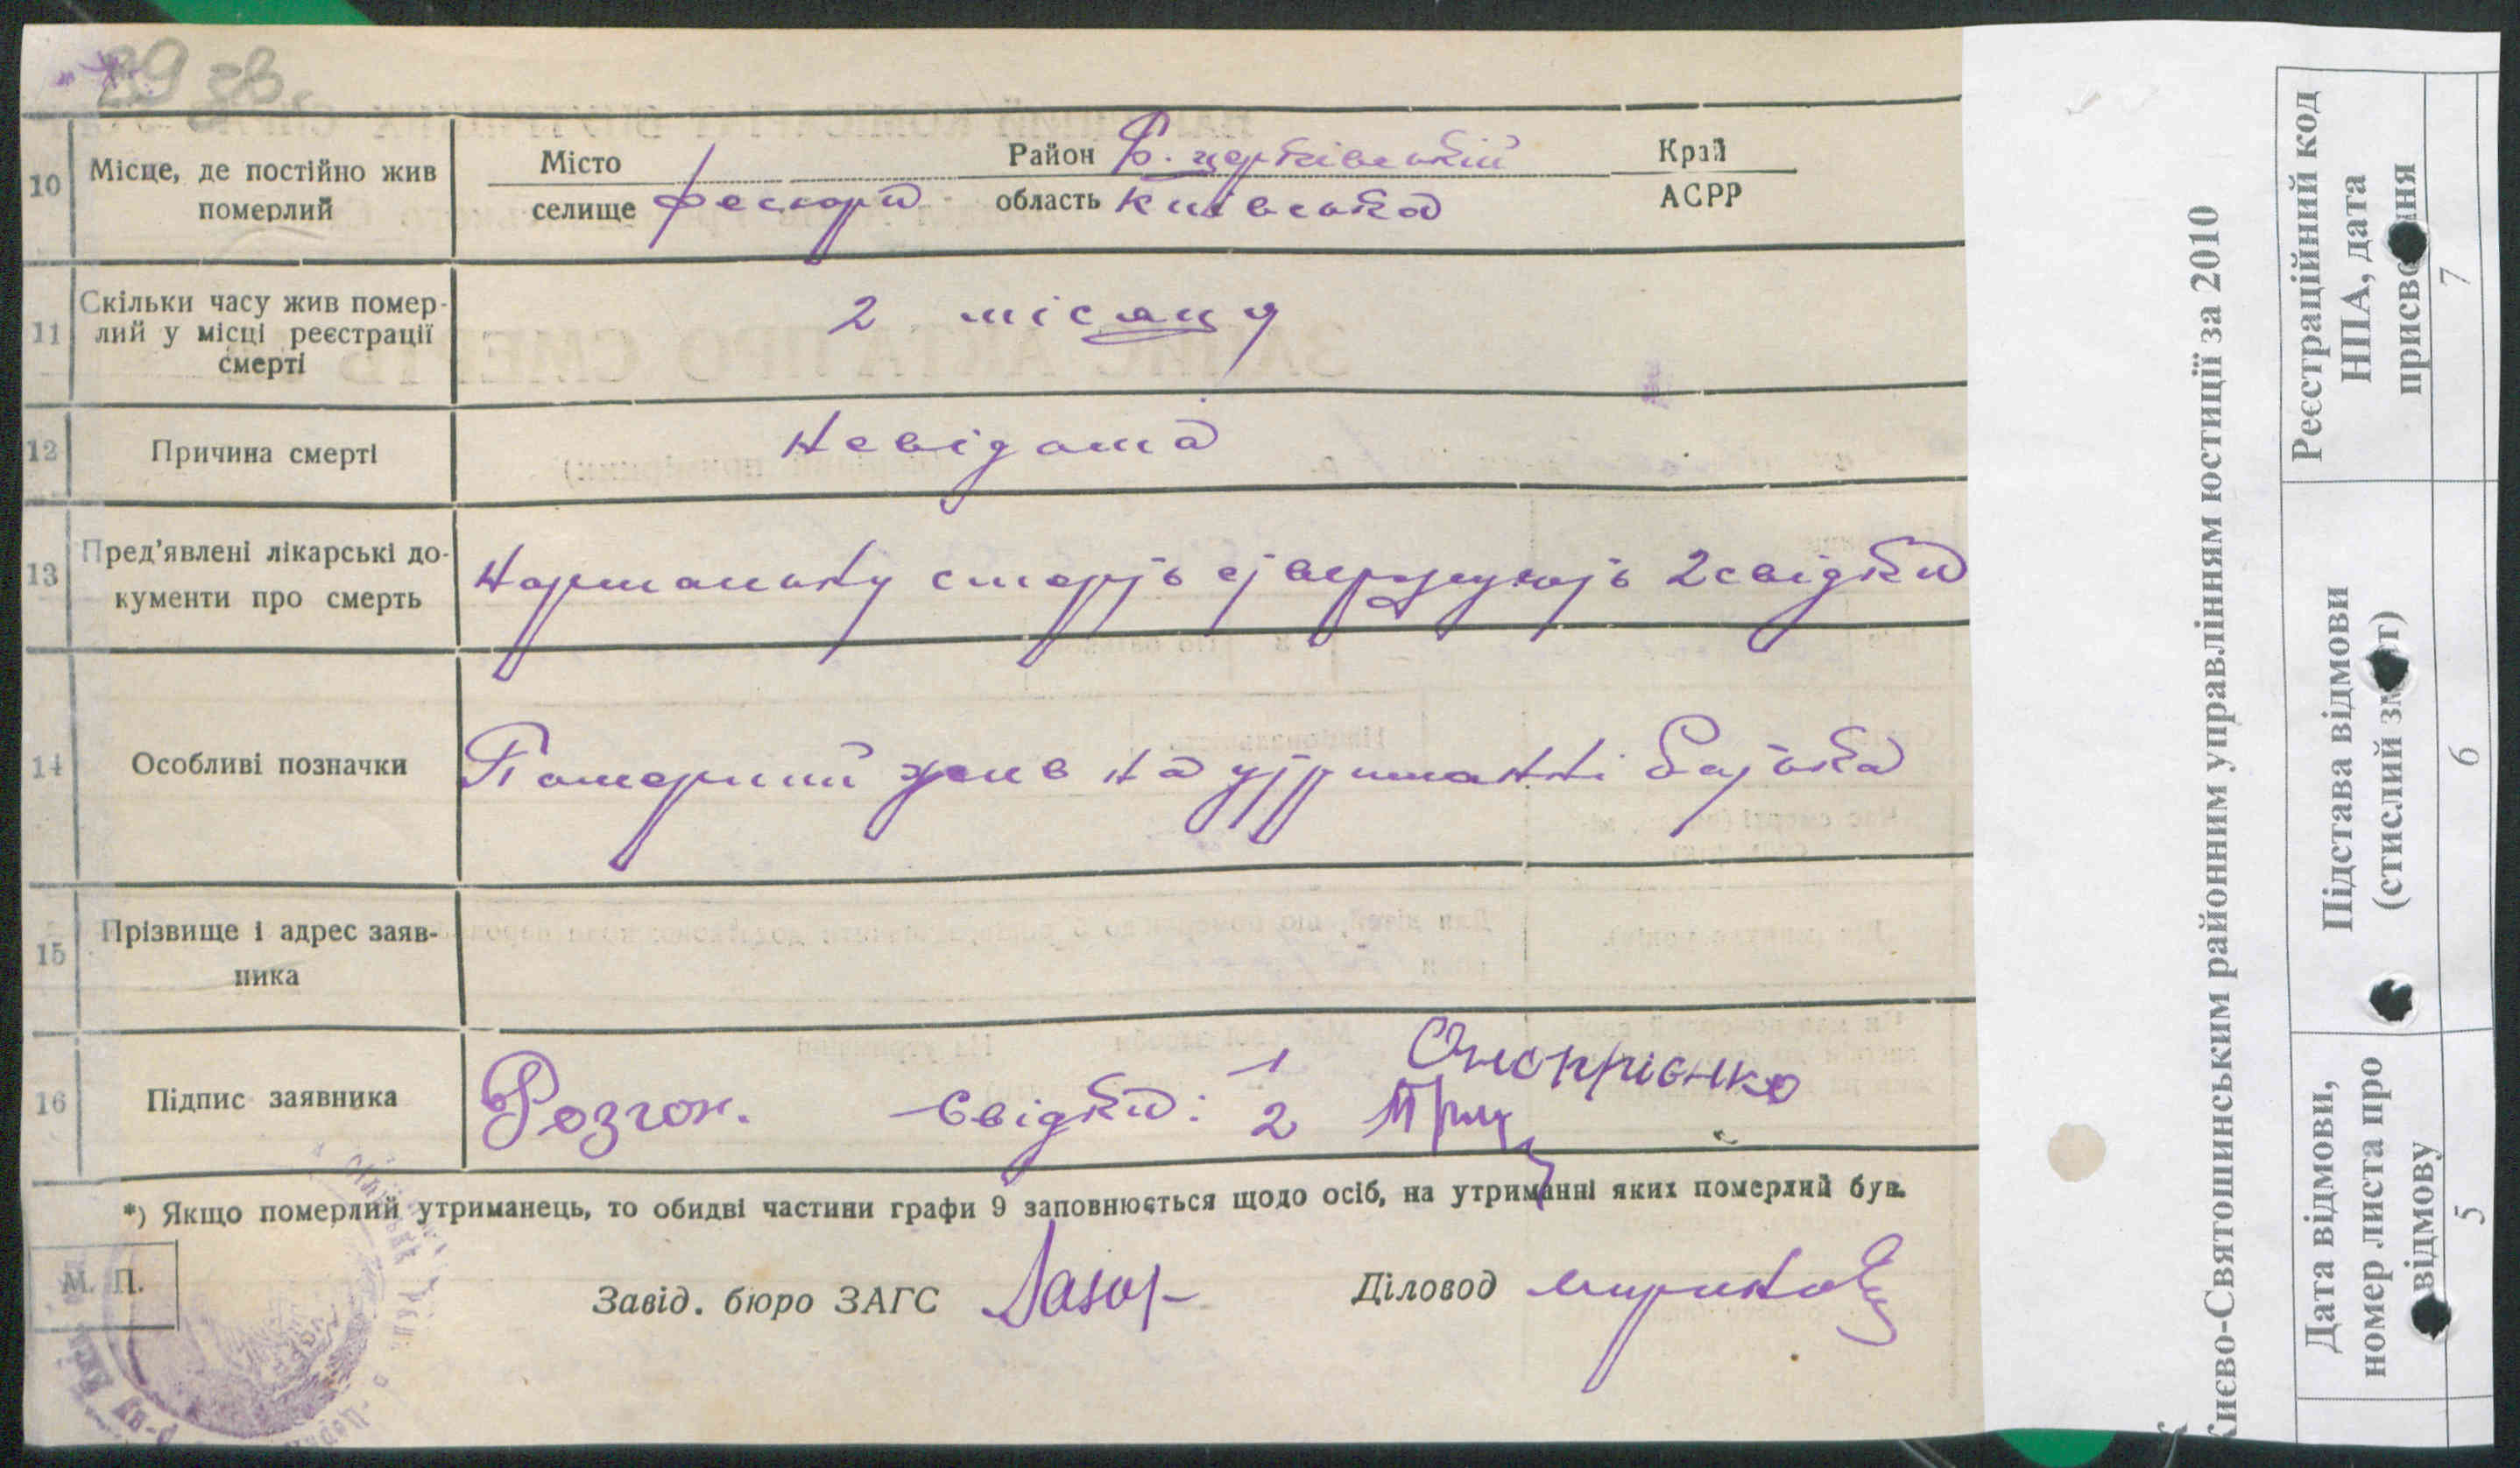 29 зв.
10 Місце, де постійно жив померлий
Місто
селище Фесюри
Район Б. церківський
область Київська
Край
АСРР
11 Скільки часу жив помер-
лий у місці реєстрації
смерті
2 місяця
12 Причина смерті
Невідома
13 Пред'явлені лікарські до-
кументи про смерть
Нормальну смерть стверджують 2 свідки
14 Особливі позначки
Померший жив на утриманні батька
15 Прізвище і адрес заяв-
ника
16 Підпис заявника
Розгон. Свідки: 1 Оноприєнко
2
*) Якщо померлий утриманець, то обидві частини графи 9 заповнюється щодо осіб, на утриманні яких померлий був.
М. П.
Завід. бюро ЗАГС
Діловод
Києво-Святошинським районним управлінням юстиції за 2010
Реєстраційний код
НПА, дата
присвоєння
7
Підстава відмови
(стислий зміст)
6
Дата відмови,
номер листа про
відмову
5